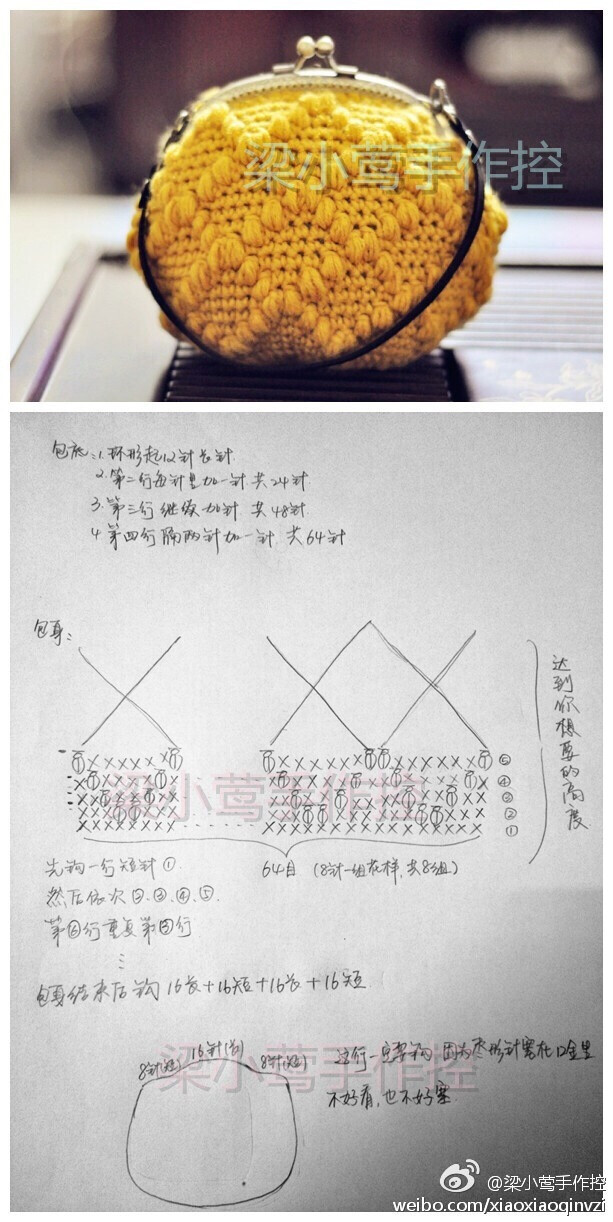 梁小莺手作控
包底:1.环形起12针长针
2.第二行每针里加一针 共24针
3.第三行继续加针 共48针
4.第四行隔两针加一针 共64针
包身:
达到你想要的高度
⑤
④
③
②
①
梁小莺手作控
64目 (8针一组花样,共8组)
先钩一行短针①
然后依次②.③.④.⑤.
第⑥行重复第③行
包身结束后钩 16长+16短+16长+16短
8针(短) 16针(长) 8针(短)
这行一定要钩 因为枣形针塞在口金里
不好看,也不好塞
梁小莺手作控
@梁小莺手作控
weibo.com/xiaoxiaoqinvzi